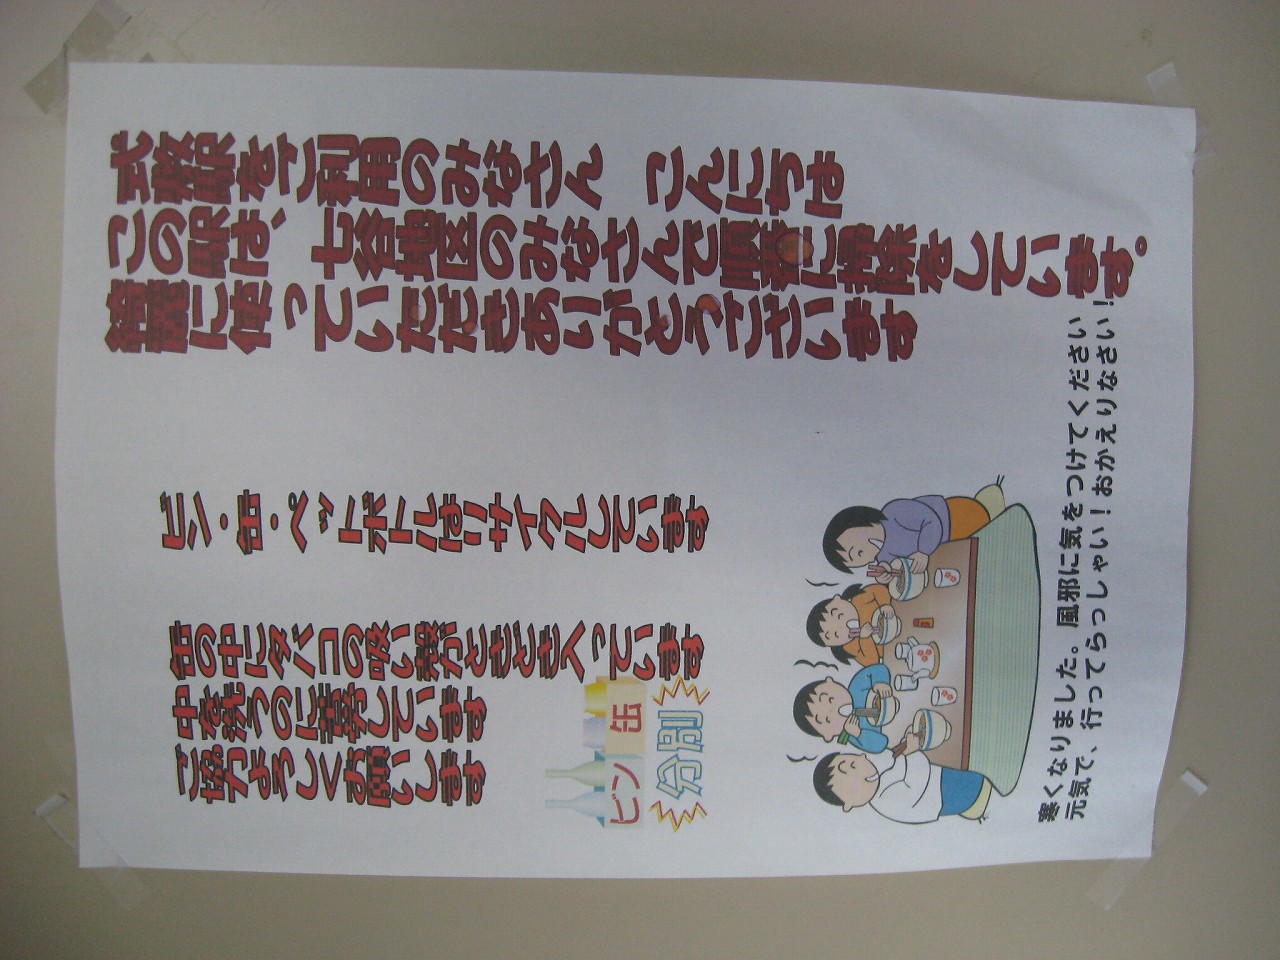 式敷駅をご利用のみなさん　こんにちは
この駅は、七谷地区のみなさんで順番に掃除をしています。
綺麗に使っていただきありがとうございます
ビン・缶・ペットボトルはリサイクルしています
缶の中にタバコの吸い殻がときどき入っています
中を洗うのに苦労しています
ご協力よろしくお願いします
ビン 缶
分別
寒くなりました。風邪に気をつけてください
元気で、行ってらっしゃい！おかえりなさい！